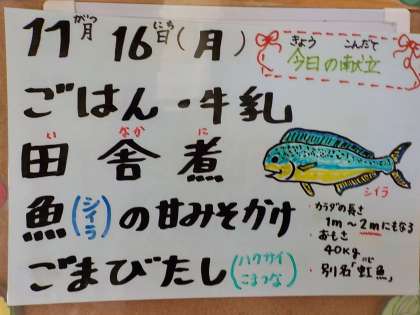 11月16日(月)
がつ にち
きょう こんだて
今日の献立
ごはん・牛乳
い なか に
田舎煮
魚(シイラ)の甘みそかけ
ごまびたし(ハクサイ こまつな)
シイラ
・カラダの長さ
1m〜2mにもなる
・おもさ
40kg
・別名「虹魚」